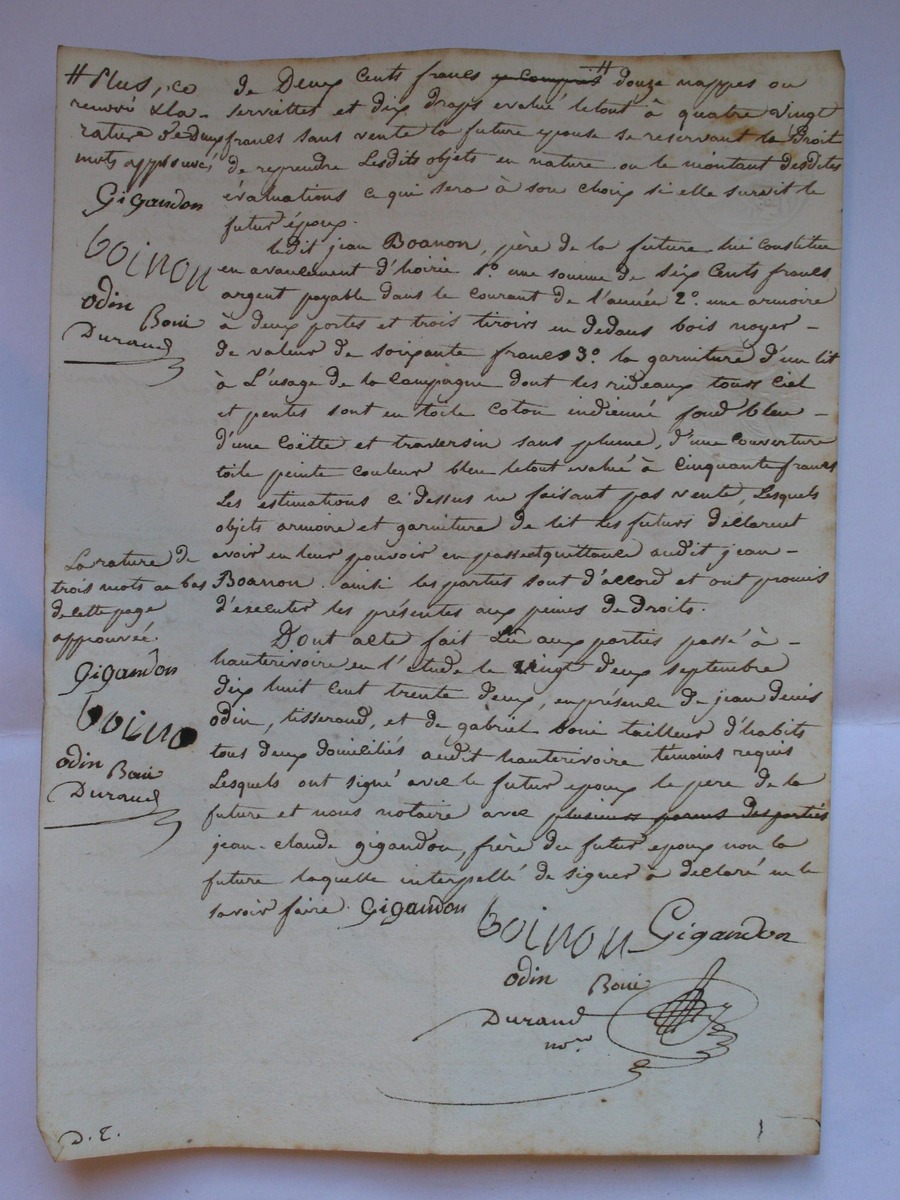 # Plus, ce
renvoi & la
rature de deux
mots approuvés
Gigandon
boinon
odin Boni
Durand
La rature de
trois mots au bas
de cette page
approuvée.
Gigandon
boinno
odin Boni
Durand
de Deux Cents francs y compris # douze nappes ou
serviettes et dix draps evalué letout à quatre vingt
francs sans vente la future epouse se reservant le Droit
de reprendre Lesdits objets en nature ou le montant desdites
évaluations ce qui sera à son choix si elle survit le
futur époux.
ledit jean Boanon, père de la future lui constitue
en avancement d'hoirie 1º une somme de six Cents francs
argent payable dans le courant de l'année 2º une armoire
à deux portes et trois tiroirs en dedans bois noyer -
de valeur de soixante francs 3º la garniture d'un lit
à L'usage de la campagne dont les rideaux tours ciel
et pentes sont en toile coton indienné fond bleu -
d'une Coëtte et traversin sans plume, d'une couverture
toile peinte couleur bleu letout evalué à Cinquante francs
Les estimations ci dessus ne faisant pas vente, Lesquels
objets armoire et garniture de lit les futurs déclarent
avoir en leur pouvoir en passent quittance audit jean -
Boanon. ainsi les parties sont d'accord et ont promis
d'executer les présentes aux peines de droits.
Dont acte fait Lu aux parties passé à -
hauterivoire en l'etude le vingt deux septembre
dix huit cent trente deux, en présence de jean denis
Odin, tisserand, et de gabriel boni tailleur d'habits
tous deux domiciliés audit hauterivoire témoins requis
Lesquels ont signé avec le futur epoux le pere de la
future et nous notaire avec plusieurs parens des parties
jean-claude gigandon, frère du futur epoux non la
future laquelle interpellé de signer a déclaré ne le
savoir faire. Gigandon
boinon Gigandon
odin Boni
Durand
nore
D. E.